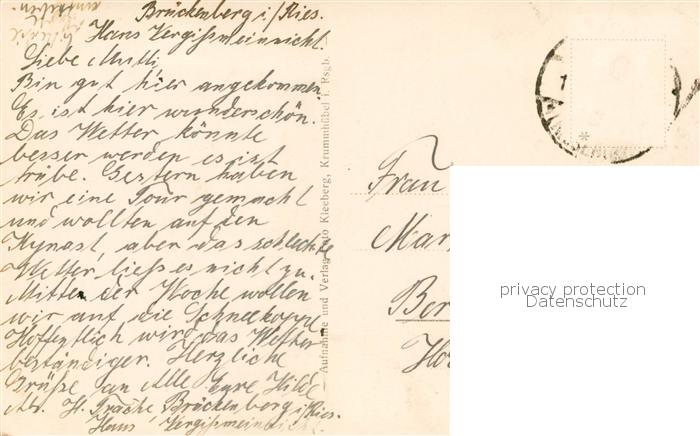 Brückenberg i/Ries.
Haus Vergißmeinnicht.
Liebe Mutti,
Bin gut hier angekommen.
Es ist hier wunderschön.
Das Wetter könnte
besser werden es ist
trübe. Gestern haben
wir eine Tour gemacht
und wollten auf den
Kynast, aber das schlechte
Wetter ließ es nicht zu.
Mitte der Woche wollen
wir auf die Schneekoppe.
Hoffentlich wird das Wetter
beständiger. Herzliche
Grüße an Alle Eure Hilde
Abs. H. Brückenberg i/Ries.
Haus Vergißmeinnicht
Aufnahme und Verlag Otto Kleeberg, Krummhübel i. Rsgb.
Frau
Mar
Ber
privacy protection
Datenschutz